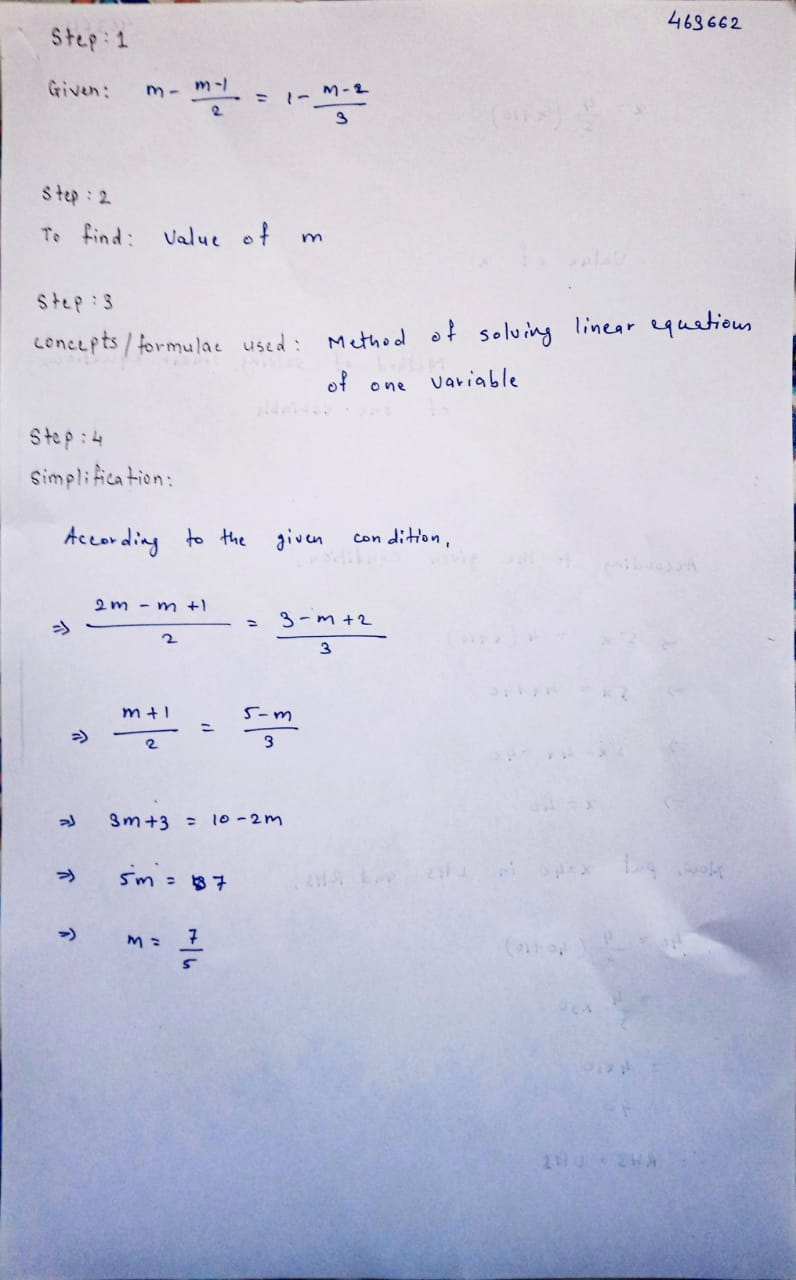 469662
Step : 1
Given: m - m-1/2 = 1 - m-2/3
Step : 2
To find: Value of m
Step : 3
concepts/formulae used: Method of solving linear equations
of one variable
Step : 4
Simplification:
According to the given condition,
⇒ 2m - m + 1/2 = 3 - m + 2/3
⇒ m+1/2 = 5-m/3
⇒ 3m+3 = 10-2m
⇒ 5m = 7
⇒ m = 7/5